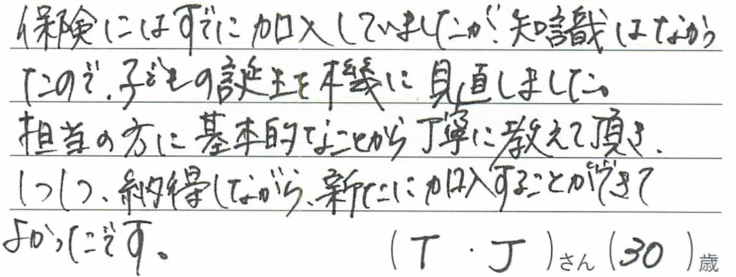 保険にはすでに加入していましたが、知識はなかっ
たので、子どもの誕生を機に見直しました。
担当の方に基本的なことから丁寧に教えて頂き、
1つ1つ、納得しながら、新たに加入することができて
よかったです。
(T・J)さん(30)歳